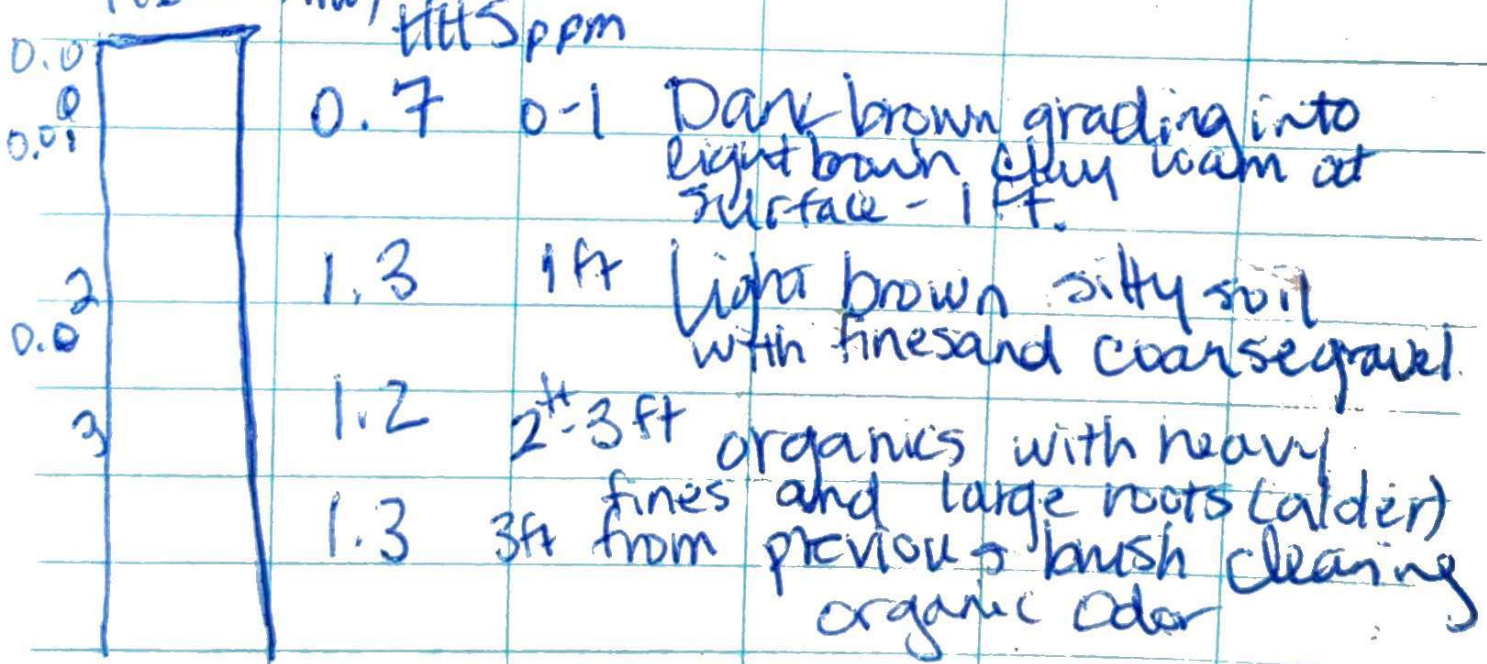 HHS ppm
0.0
0.7 0-1 Dark brown grading into
0
0.01
light brown clay loam at
surface - 1 ft.
1.3 1ft Light brown silty soil
2
0.0 with fines and coarse gravel.
1.2 2ft-3ft organics with heavy
3
fines and large roots (alder)
1.3 3ft from previous brush clearing
organic odor